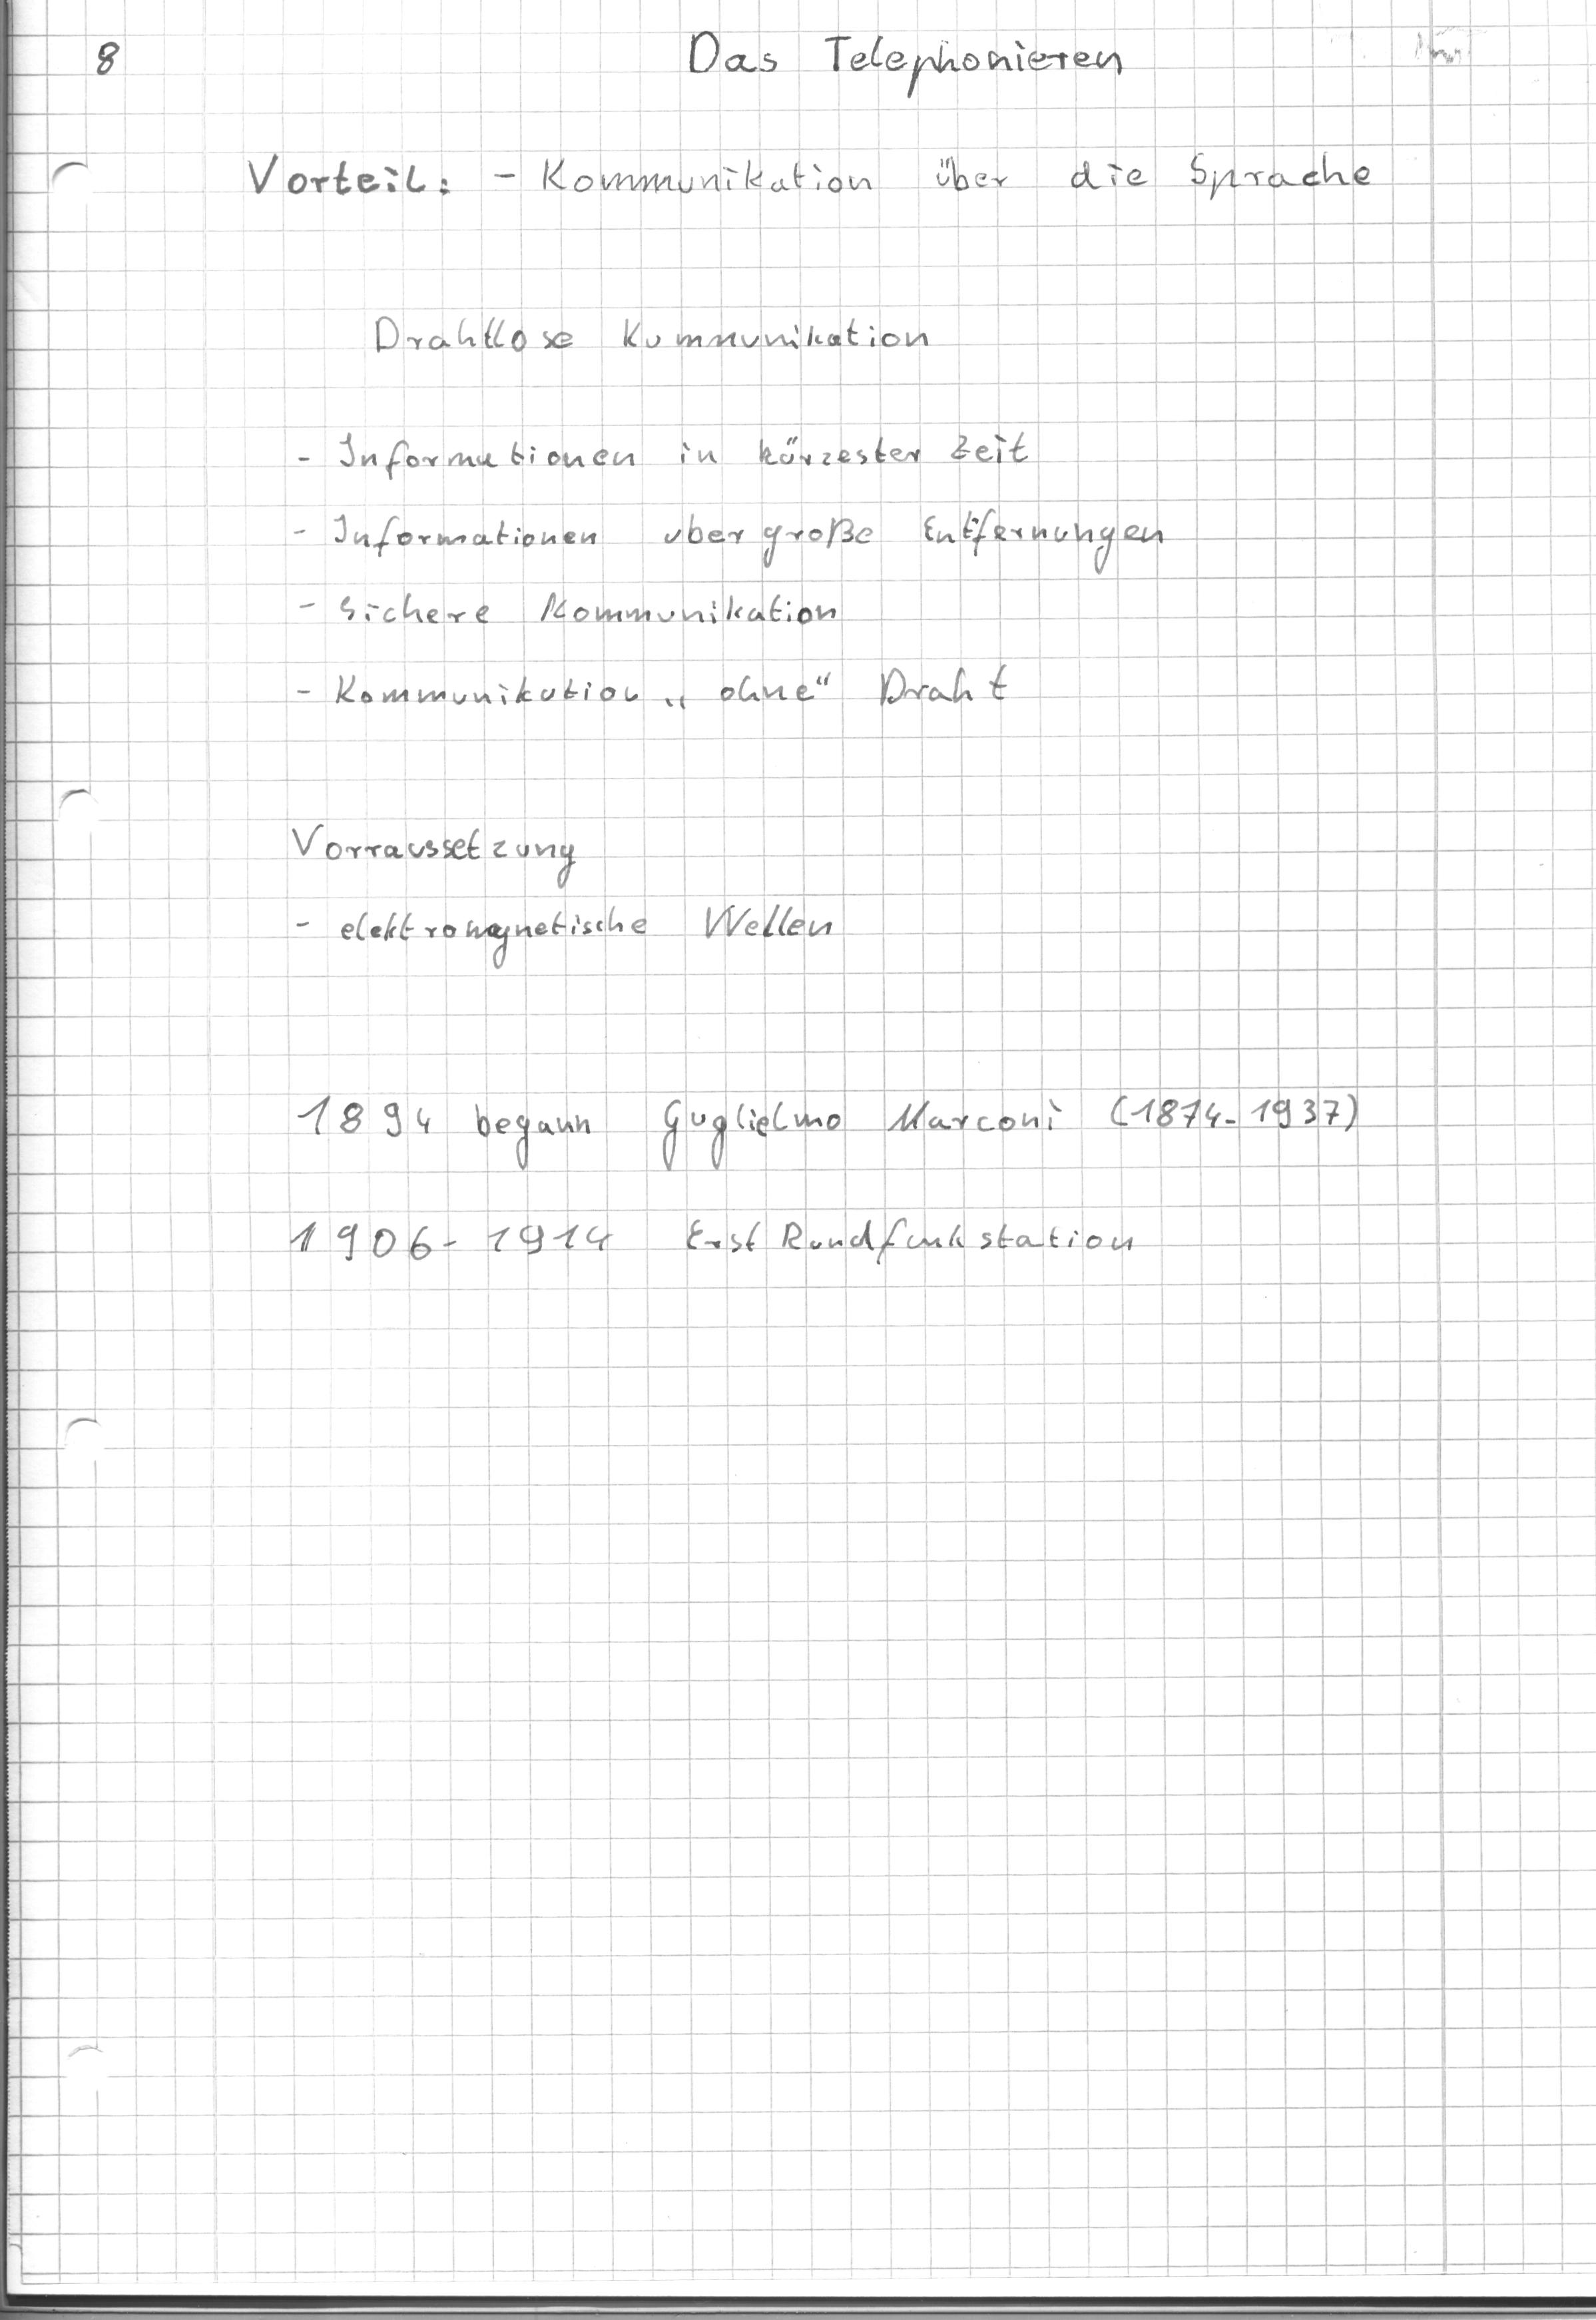 8
Das Telephonieren
Vorteil: - Kommunikation über die Sprache
Drahtlose Kommunikation
- Informationen in kürzester Zeit
- Informationen uber große Entfernungen
- Sichere Kommunikation
- Kommunikation „ohne“ Draht
Vorraussetzung
- elektromagnetische Wellen
1894 begann Guglielmo Marconi (1874-1937)
1906-1914 Erst Rundfunkstation